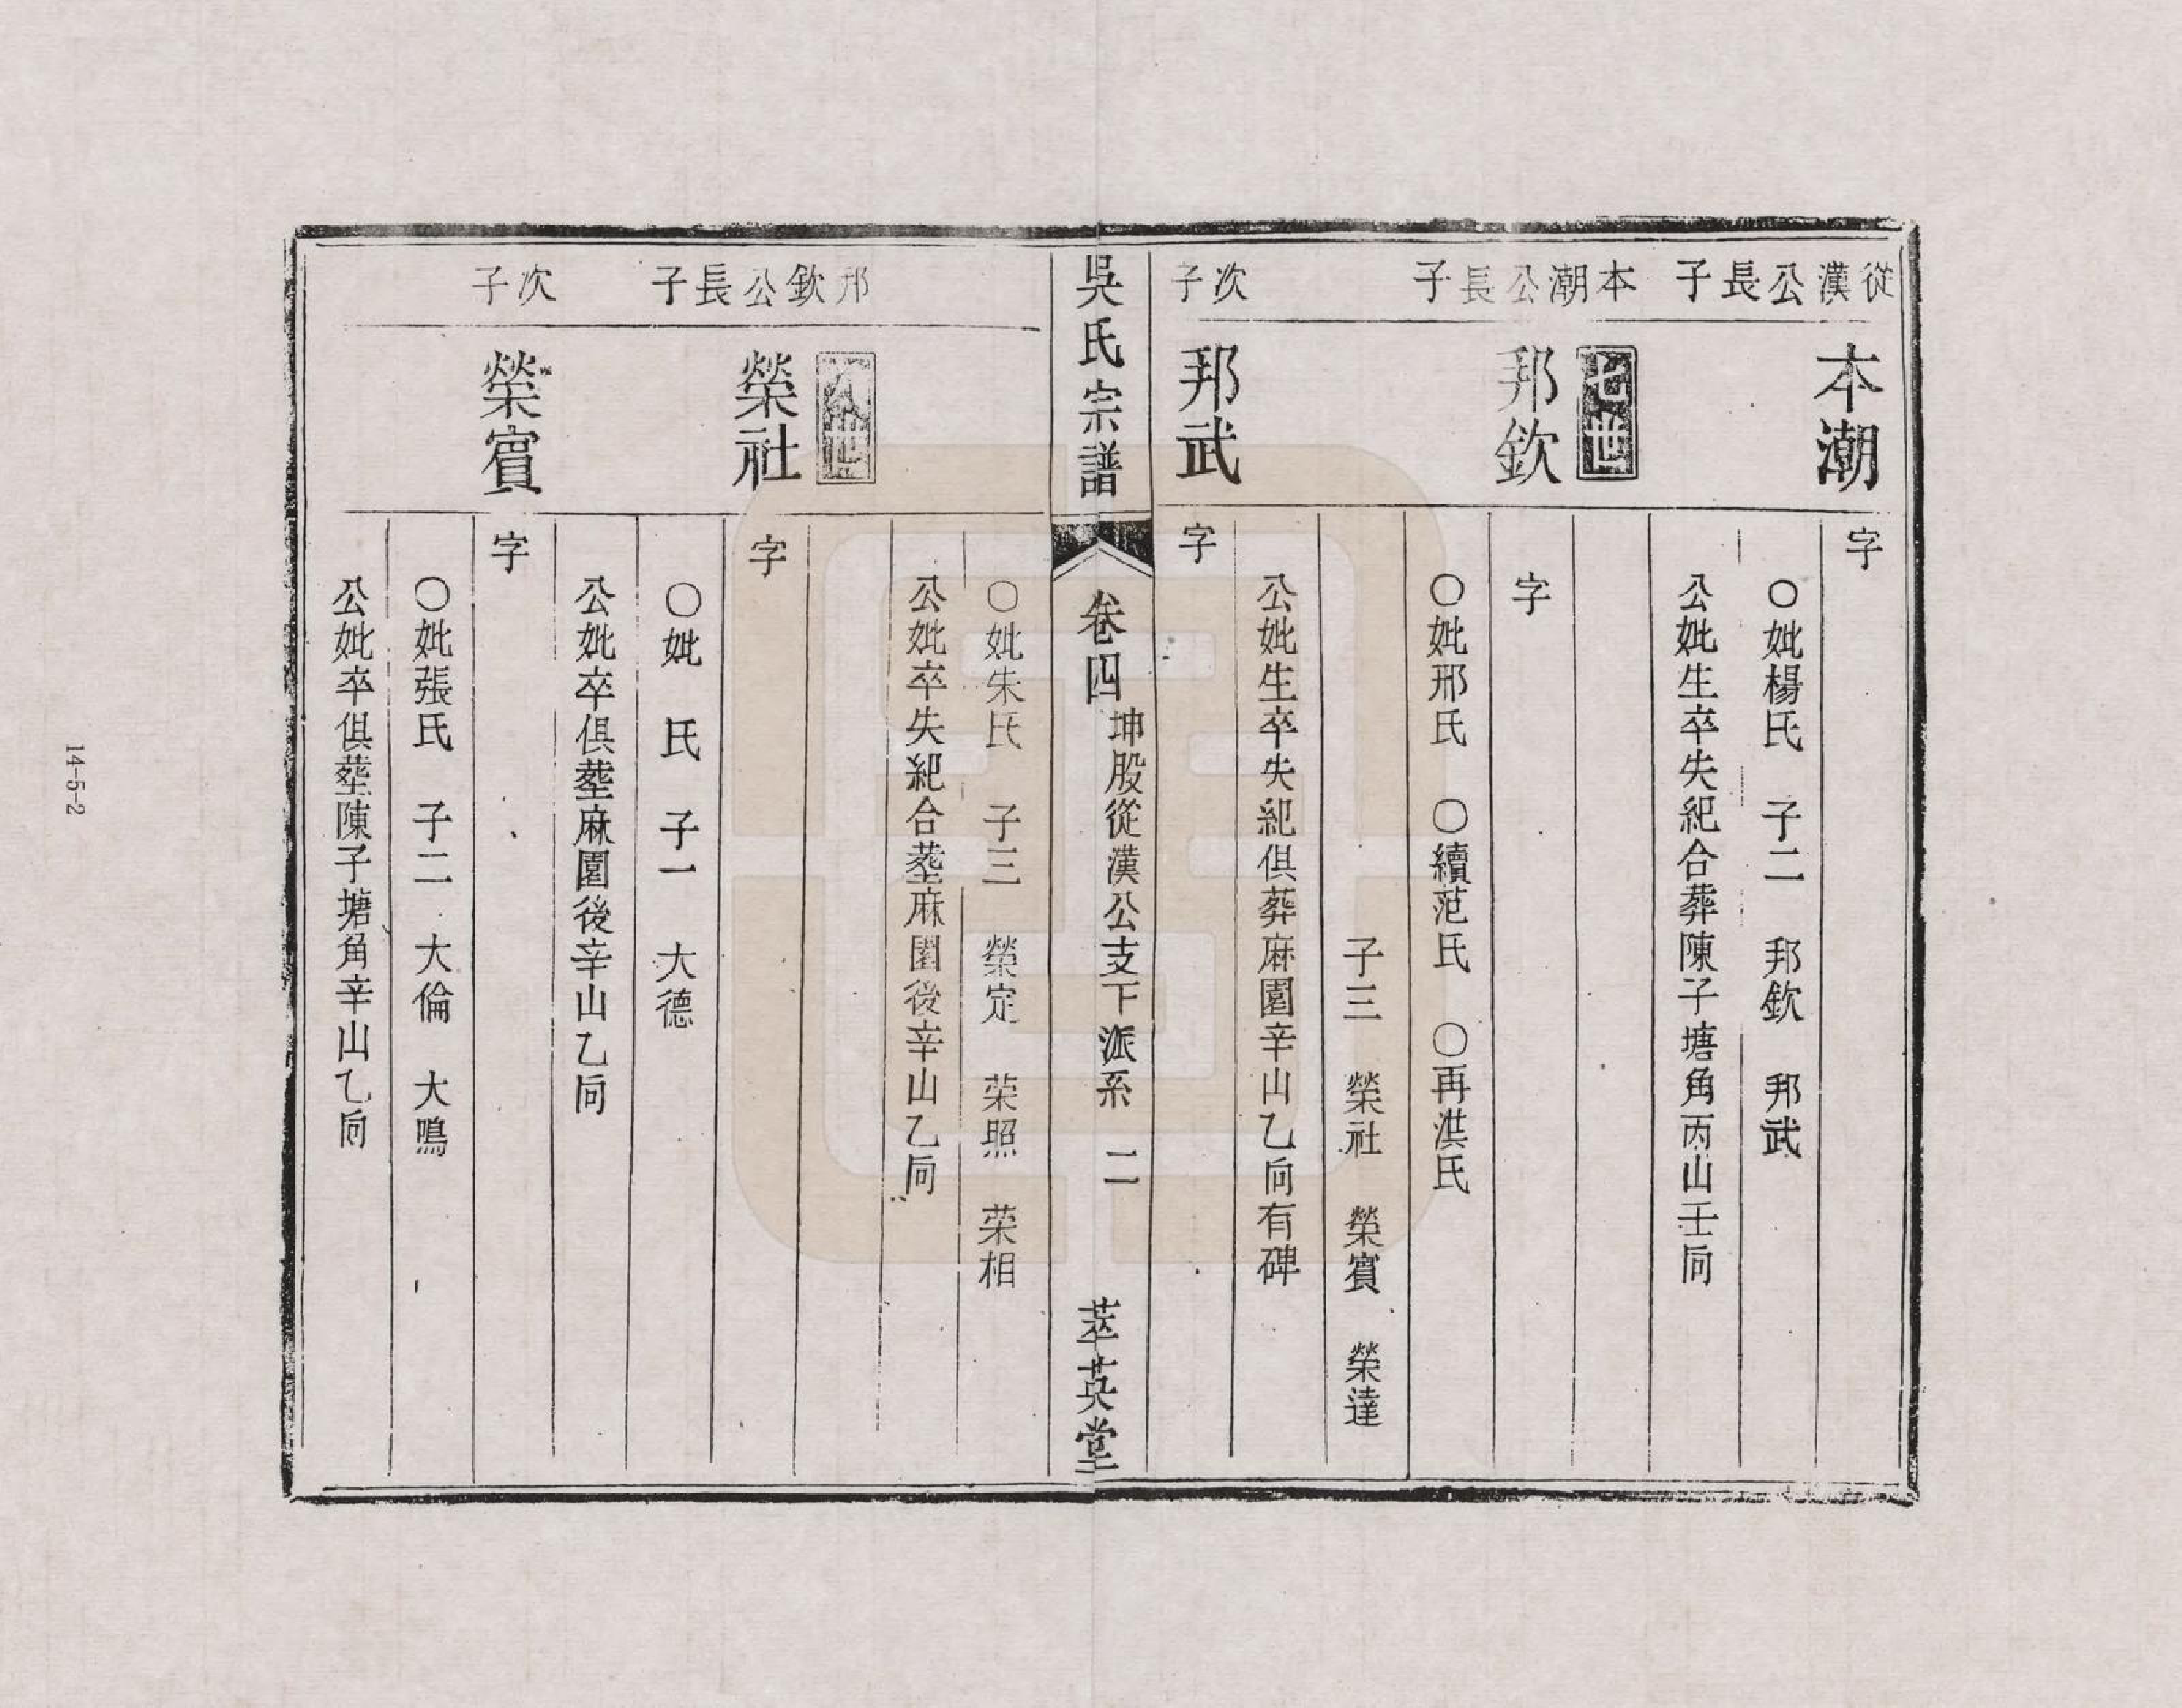 從漢公長子
本潮
字
○妣楊氏　子二　邦欽　邦武
公妣生卒失紀合葬陳子塘角丙山壬向
本潮公長子
七世
邦欽
字
○妣邢氏　○續范氏　○再洪氏
子三　榮社　榮賓　榮達
公妣生卒失紀俱葬麻園辛山乙向有碑
次子
邦武
字
吳氏宗譜
卷四
坤股從漢公支下派系　二
萃英堂
○妣朱氏　子三　榮定　荣照　荣相
公妣卒失紀合塟麻園後辛山乙向
邦欽公長子
八世
榮社
字
○妣　氏　子一　大德
公妣卒俱塟麻園後辛山乙向
次子
榮賓
字
○妣張氏　子二　大倫　大鳴
公妣卒俱塟陳子塘角辛山乙向
14-5-2